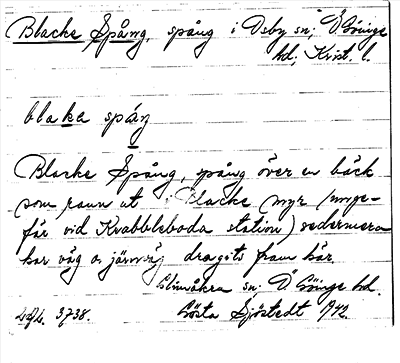 Blacke Spång, spång i Osby sn; Ö. Göinge
hd; Krist. l.
blaka spáŋ
Blacke Spång, spång över en bäck
som rann ut i Blacke myr (unge-
fär vid Krabbleboda station) sedermera
har väg o. järnväg dragits fram här.
Glimåkra sn. Ö. Göinge hd.
3738. Gösta Sjöstedt 1942.